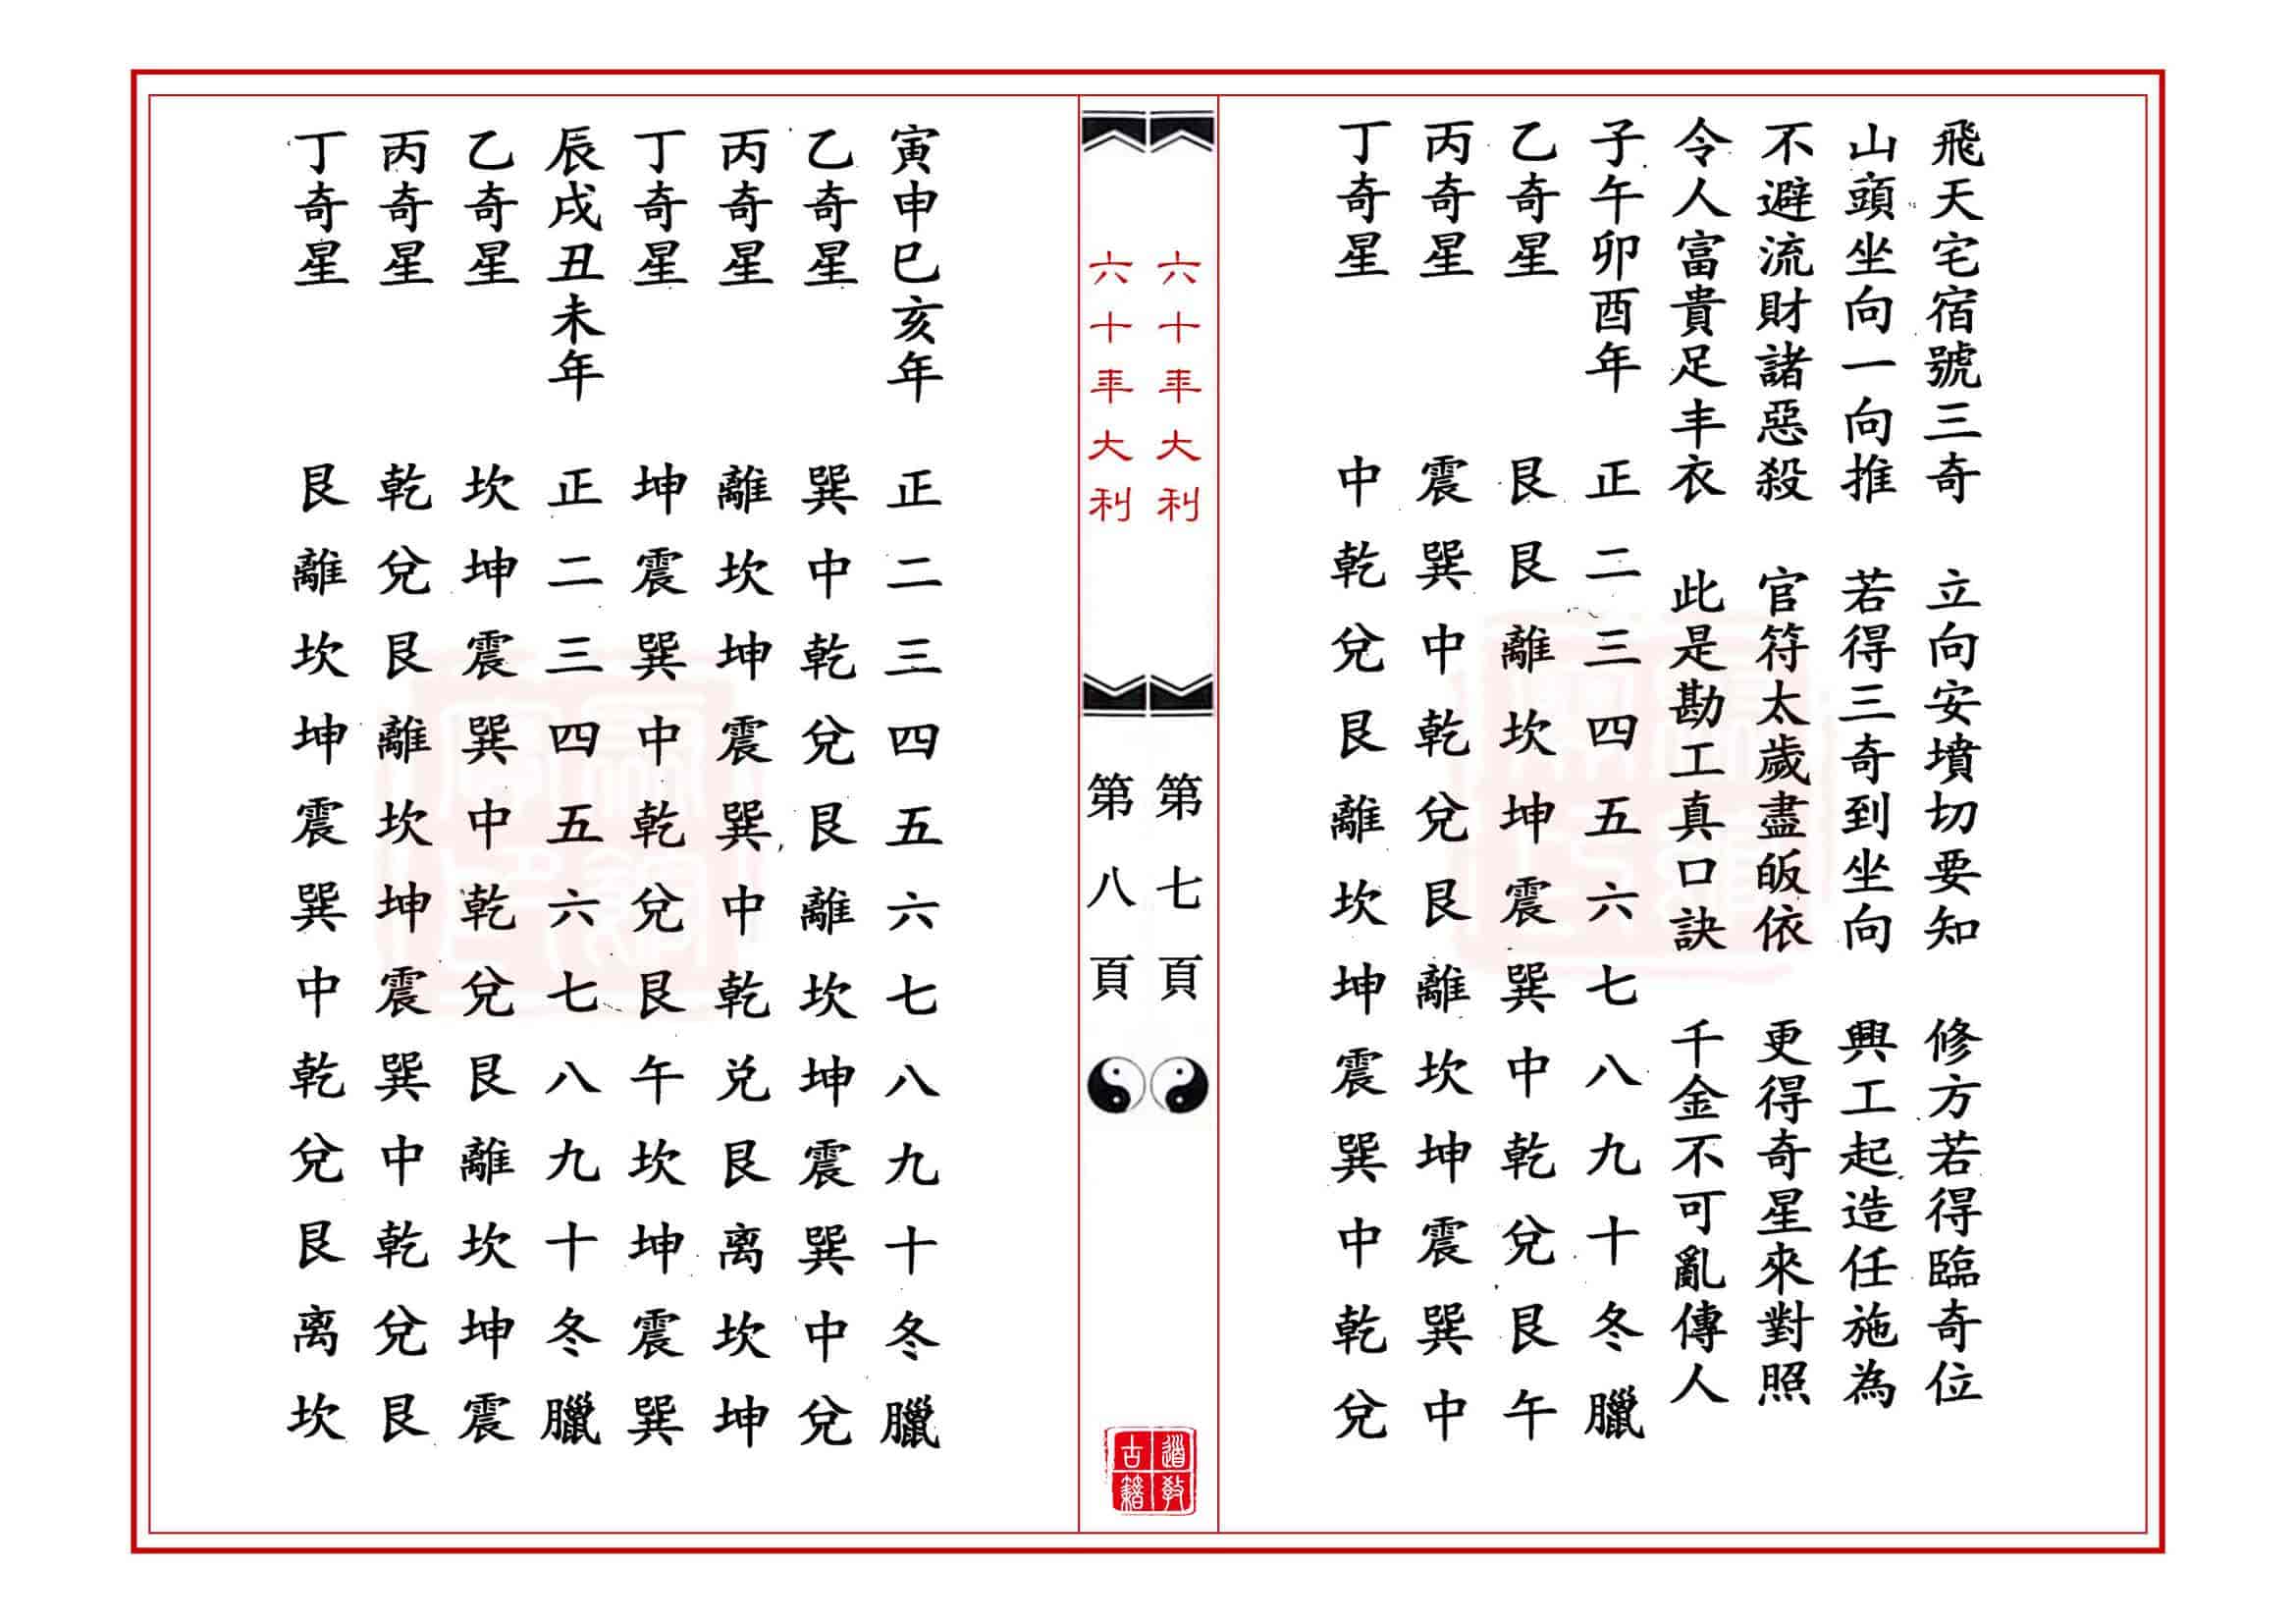 飛天宅宿號三奇　立向安墳切要知　修方若得臨奇位
山頭坐向一向推　若得三奇到坐向　興工起造任施為
不避流財諸惡殺　官符太歲盡皈依　更得奇星來對照
令人富貴足丰衣　此是勘工真口訣　千金不可亂傳人
子午卯酉年　正二三四五六七八九十冬臘
乙奇星　艮艮離坎坤震巽中乾兌艮午
丙奇星　震巽中乾兌艮離坎坤震巽中
丁奇星　中乾兌艮離坎坤震巽中乾兌
六十年大利　第七頁
六十年大利　第八頁
道教古籍
寅申巳亥年　正二三四五六七八九十冬臘
乙奇星　巽中乾兌艮離坎坤震巽中兌
丙奇星　離坎坤震巽中乾兑艮离坎坤
丁奇星　坤震巽中乾兌艮午坎坤震巽
辰戌丑未年　正二三四五六七八九十冬臘
乙奇星　坎坤震巽中乾兌艮離坎坤震
丙奇星　乾兌艮離坎坤震巽中乾兌艮
丁奇星　艮離坎坤震巽中乾兌艮离坎